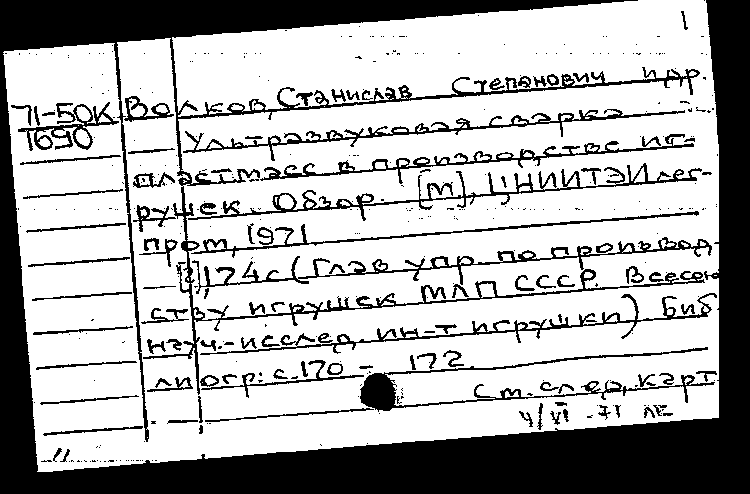 1
71-50К Волков, Станислав Степанович и др.
1690 Ультразвуковая сварка
пластмасс в производстве иг-
рушек. Обзор. [М], ЦНИИТЭИлег-
пром, 1971
[2], 174с (Глав упр. по производ-
ству игрушек МЛП СССР. Всесоюз
науч.-исслед. ин-т игрушки) Биб
лиогр: с.170 - 172.
Ст. след. карт
4/VI -71